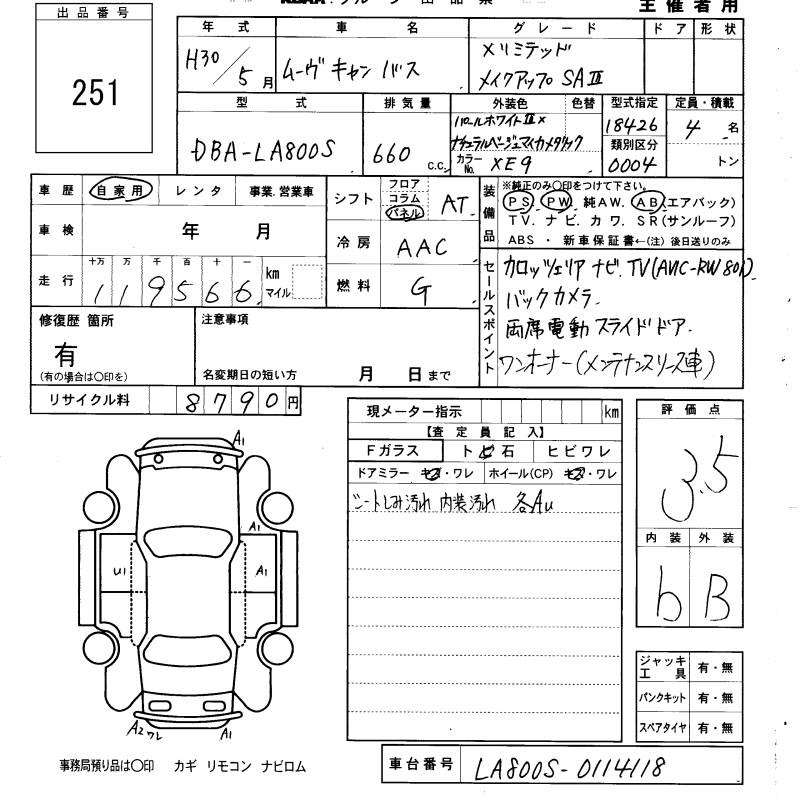 主催者用
出品番号
251
年式 車名 グレード ドア 形状
H30/5月 ムーヴキャンバス Xリミテッド
メイクアップ SAⅢ
型式 排気量 外装色 色替 型式指定 定員・積載
DBA-LA800S 660 c.c. パールホワイトⅢ×
ナチュラルベージュマイカメタリック
カラーNo. XE9
18426
類別区分
0004
4名
トン
車歴 自家用 レンタ 事業.営業車
シフト フロア コラム パネル AT
車検 年 月
冷房 AAC
走行 十万 万 千 百 十 一
119566 km マイル
燃料 G
装備品 ※純正のみ○印をつけて下さい。
PS. PW. 純AW. AB(エアバック)
TV. ナビ. カワ. SR(サンルーフ)
ABS ・ 新車保証書←(注)後日送りのみ
セールスポイント カロッツェリア ナビ.TV(AVIC-RW801)
バックカメラ.
両席電動スライドドア.
ワンオーナー(メンテナンスリース車)
修復歴 箇所 注意事項
有
(有の場合は○印を) 名変期日の短い方 月 日まで
リサイクル料 8790円
現メーター指示 km
【査定員記入】
Fガラス トビ石 ヒビワレ
ドアミラー キズ・ワレ ホイール(CP) キズ・ワレ
シートしみ汚れ 内装汚れ 各AU
評価点
3.5
内装 外装
b B
A1
A1
U1 A1
A2 ワレ A1
ジャッキ工具 有・無
パンクキット 有・無
スペアタイヤ 有・無
事務局預り品は○印 カギ リモコン ナビロム
車台番号 LA800S-0114118